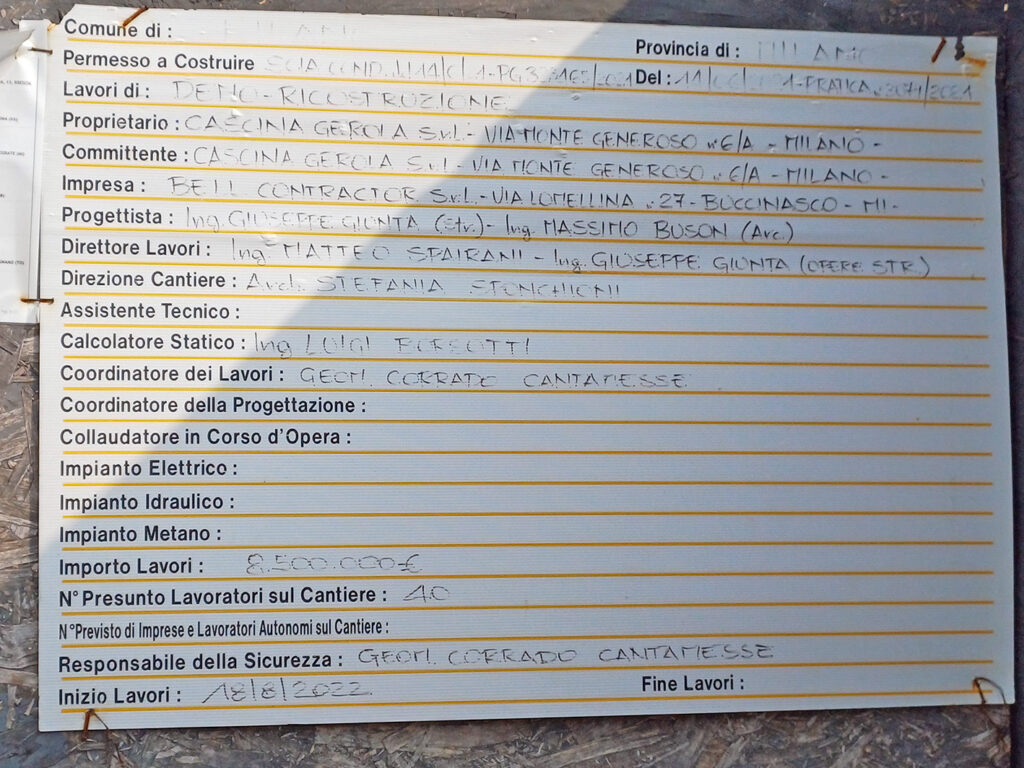 Comune di : MILANO
Provincia di : MILANO
Permesso a Costruire SCIA COND. Del :
Lavori di : DEMO-RICOSTRUZIONE
Proprietario : CASCINA GEROLA S.r.L - VIA MONTE GENEROSO n°6/A - MILANO -
Committente : CASCINA GEROLA S.r.L - VIA MONTE GENEROSO n°6/A - MILANO -
Impresa : BEIL CONTRACTOR S.r.L - VIA LOMELLINA n°27 - BUCCINASCO - MI -
Progettista : Ing. GIUSEPPE GIUNTA (Str.) - Ing. MASSIMO BUSON (Arc.)
Direttore Lavori : Ing. MATTEO SPAIRANI - Ing. GIUSEPPE GIUNTA (OPERE STR.)
Direzione Cantiere : Arch. STEFANIA
Assistente Tecnico :
Calcolatore Statico : Ing LUIGI
Coordinatore dei Lavori : GEOM. CORRADO CANTAMESSE
Coordinatore della Progettazione :
Collaudatore in Corso d'Opera :
Impianto Elettrico :
Impianto Idraulico :
Impianto Metano :
Importo Lavori : 8.500.000€
N° Presunto Lavoratori sul Cantiere : 40
N° Previsto di Imprese e Lavoratori Autonomi sul Cantiere :
Responsabile della Sicurezza : GEOM. CORRADO CANTAMESSE
Inizio Lavori : 18/8/2022
Fine Lavori :